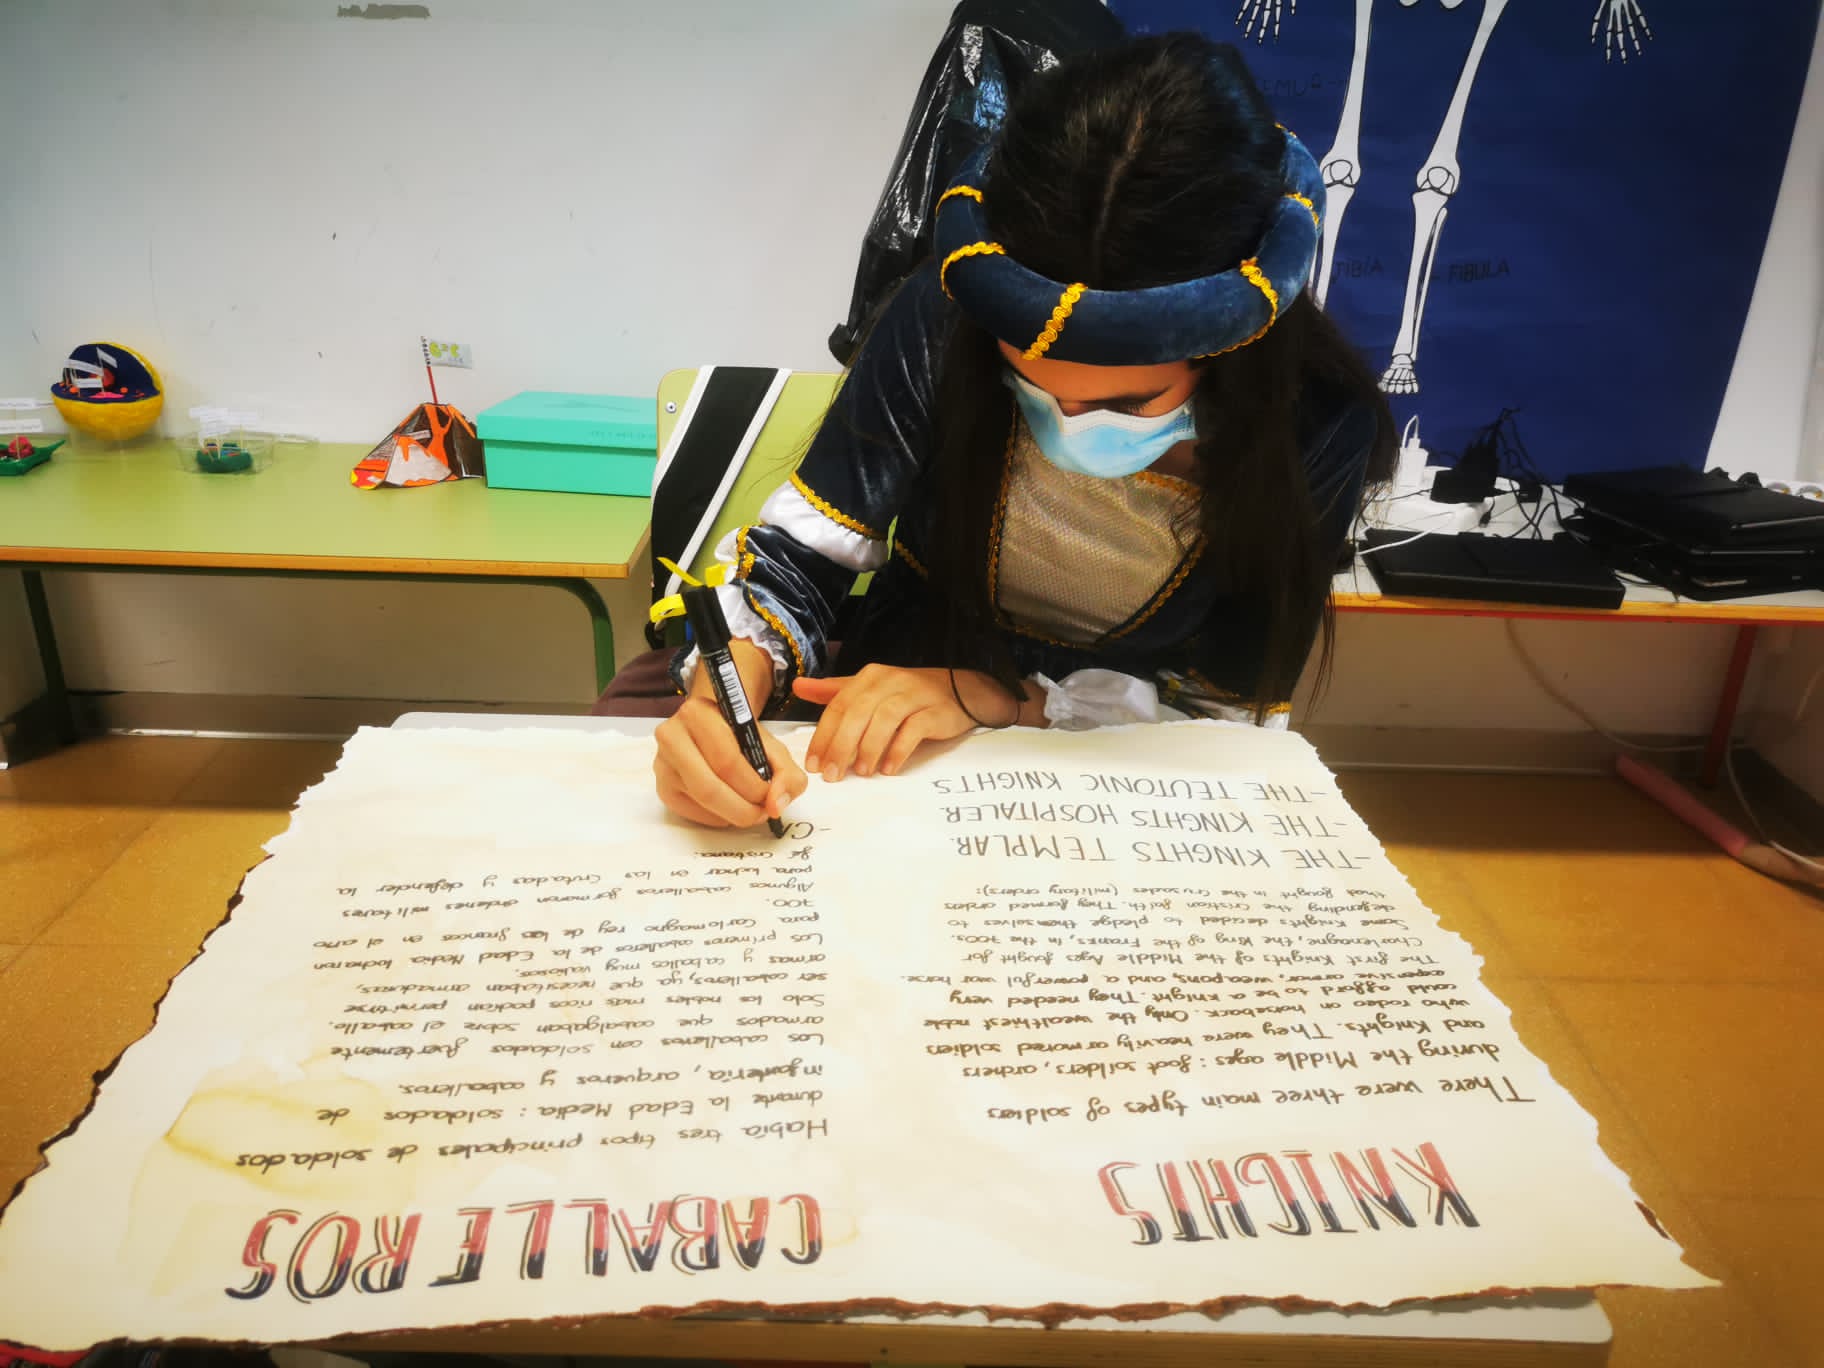 KNIGHTS
There were three main types of soldiers
during the Middle ages: foot soilders, archers
and Knights. They were heavily armored soldiers
who rodeo on horseback. Only the wealthiest noble
could afford to be a Knight. They needed very
expensive armor, weapons, and a powerful war horse.
The first Knights of the Middle Ages fought for
Charlemagne, the King of the Franks, in the 700s.
Some Knights decided to pledge themselves to
defending the Cristian faith. They formed orders
that fought in the Crusades (military orders):
-THE KINGHTS TEMPLAR.
-THE KINGHTS HOSPITALER.
-THE TEUTONIC KNIGHTS.
CABALLEROS
Había tres tipos principales de soldados
durante la Edad Media: soldados de
infantería, arqueros y caballeros.
Los caballeros con soldados fuertemente
armados que cabalgaban sobre el caballo.
Solo los nobles más ricos podían permitirse
ser caballeros, ya que necesitaban armaduras,
armas y caballos muy valiosos.
Los primeros caballeros de la Edad Media lucharon
para Carlomagno rey de los francos en el año
700.
Algunos caballeros formaron órdenes militares
para luchar en las Crutadas y defender la
fé cristiana.
-CA
TIBÍA
FIBULA